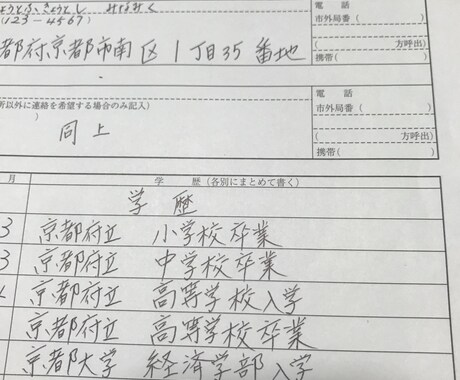 (123-4567)
電話
市外局番(
都府京都市南区1丁目35番地
(方呼出)
携帯(
所以外に連絡を希望する場合のみ記入)
電話
市外局番(
)
同上
(方呼出)
携帯(
月 学歴(各別にまとめて書く)
学歴
3 京都府立 小学校卒業
3 京都府立 中学校卒業
京都府立 高等学校入学
京都府立 高等学校卒業
京都大学 経済学部入学